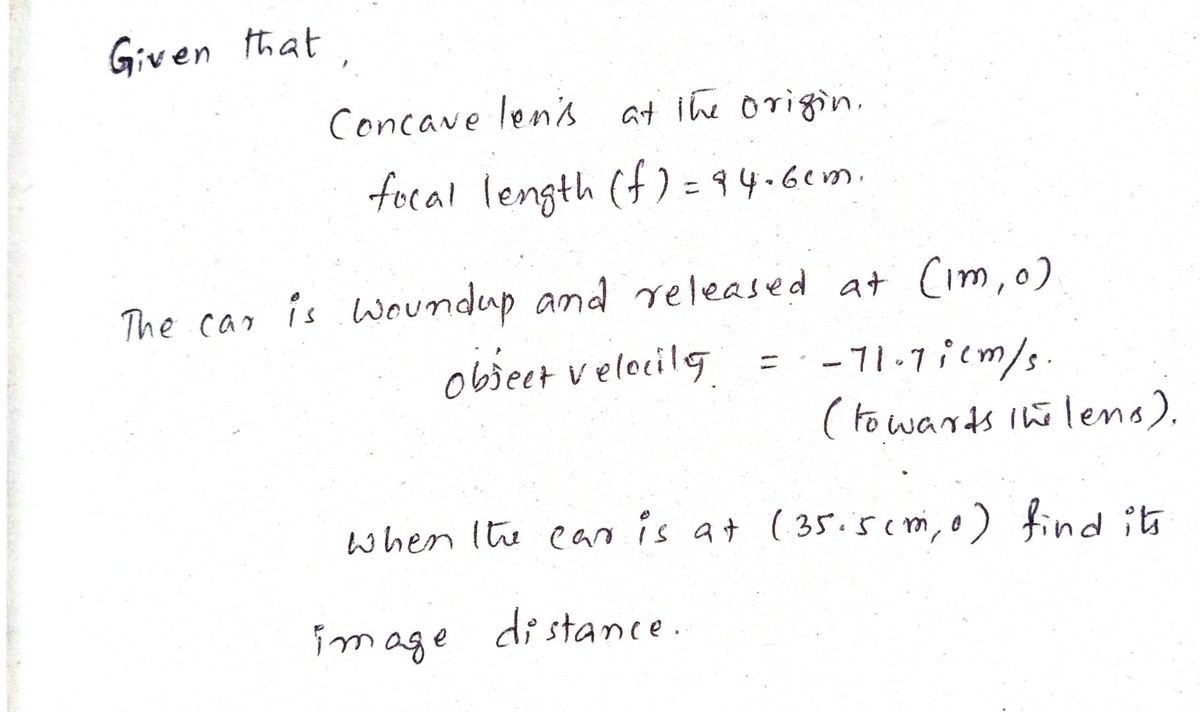 Given that,
Concave lens at the origin.
focal length (f) = 94.6cm.
The car is woundup and released at (1m,0)
object velocity = -71.7 i cm/s.
(towards the lens).
when the car is at (35.5cm,0) find its
image distance.